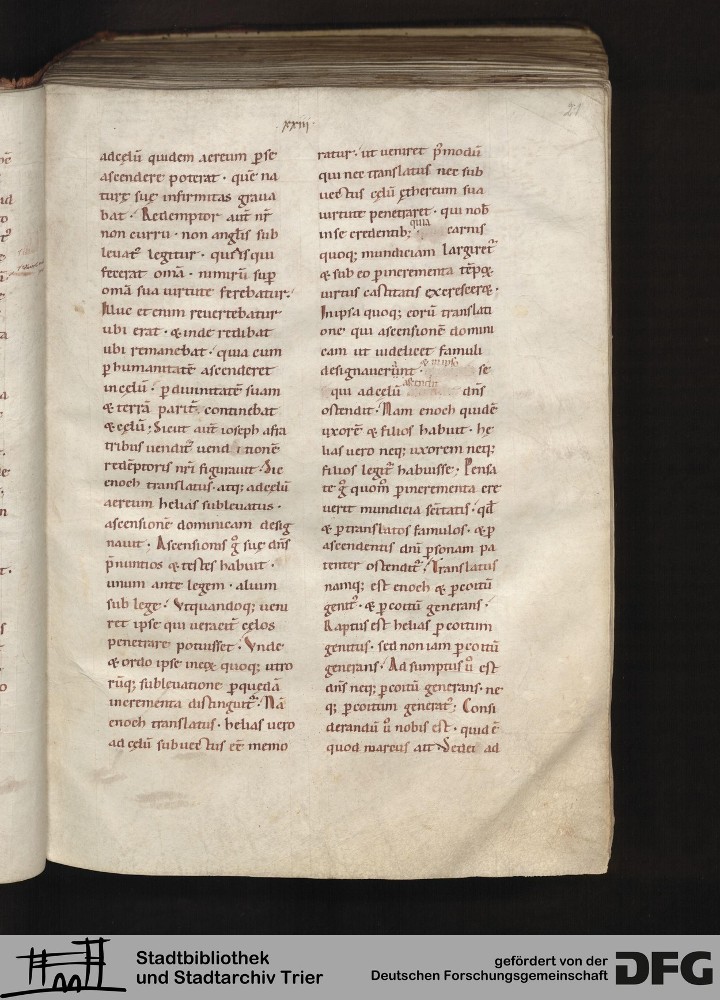 xxiii
21
adcęlū quidem aereum p̄se
ascendere poterat · quē na
turę suę infirmitas graua
bat · Redemptor aut̄ nr̄
non curru · non angl̄is sub
leuat᷒ legitur · quia is qui
fecerat om̄a · nimirū sup̄
om̄a sua uirtute ferebatur ·
Illuc etenim reuertebatur
ubi erat · & inde redibat
ubi remanebat · quia cum
p humanitatē ascenderet
incęlū · p diuinitatē suam
& terrā parit̄ continebat
& cęlū ; Sicut aut̄ ioseph afra
tribus uendit᷒ uenditionē
redēptoris nr̄i figurauit · Sic
enoch translatus · atq; adcęlū
aereum helias subleuatus ·
ascensionē dominicam desig
nauit · Ascensionis g̊ suę dn̄s
p̄nuntios & testes habuit ·
unum ante legem · alium
sub lege · Vtquandoq; ueni
ret ipse qui ueracit̄ cęlos
penetrare potuisset · Vnde
& ordo ipse inеоꝝ quoq; utro
rūq; subleuatione p quedā
incrementa distinguit᷒ · Nā
enoch translatus · helias uero
ad cęlū subuectus eē memo
ratur · ut ueniret p̄modū
qui nec translatus nec sub
uectus cęlū ęthereum sua
uirtute penetraret · qui nob̄
inse credentib; quia carnis
quoq; mundiciam largiret᷒
& sub eo p incrementa tēpoꝝ
uirtus castitatis excresceret ·
Inipsa quoq; eorū translati
one qui ascensionē domini
cam ut uidelicet famuli
designauerunt · & inipso se
qui adcęlū ascendit dn̄s
ostendit · Nam enoch quidē
uxorē & filios habuit · he
lias uero neq; uxorem neq;
filios legit᷒ habuisse ; Pensa
te g̊ quom̄ p incrementa cre
uerit mundicia sc̄itatis · qd̄
& p translatos famulos · & p
ascendentis dn̄i p̄sonam pa
tenter ostendit᷒ ; Translatus
namq; est enoch & p coitū
genit᷒ · & p coitū generans ·
Raptus est helias p coitum
genitus · sed non iam p coitū
generans · Ad sumptus ů est
dn̄s neq; p coitū generans · ne
q; p coitum generat᷒ ; Consi
derandū ů nobis est · quid ē
quod marcus ait · Sedet ad
Stadtbibliothek
und Stadtarchiv Trier
gefördert von der
Deutschen Forschungsgemeinschaft
DFG